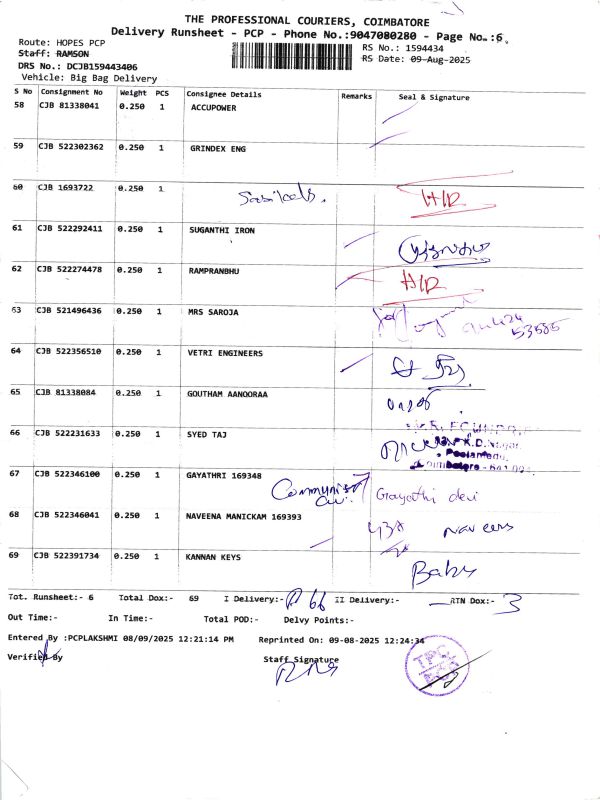 THE PROFESSIONAL COURIERS, COIMBATORE
Delivery Runsheet - PCP - Phone No.:9047080280 - Page No.:6
Route: HOPES PCP
RS No.: 1594434
Staff: RAMSON
RS Date: 09-Aug-2025
DRS No.: DCJB159443406
Vehicle: Big Bag Delivery
S No Consignment No Weight PCS Consignee Details Remarks Seal & Signature
58 CJB 81338041 0.250 1 ACCUPOWER
59 CJB 522302362 0.250 1 GRINDEX ENG
60 CJB 1693722 0.250 1 H/D
61 CJB 522292411 0.250 1 SUGANTHI IRON
62 CJB 522274478 0.250 1 RAMPRANBHU H/D
63 CJB 521496436 0.250 1 MRS SAROJA
53585
64 CJB 522356510 0.250 1 VETRI ENGINEERS
65 CJB 81338084 0.250 1 GOUTHAM AANOORAA
66 CJB 522231633 0.250 1 SYED TAJ
67 CJB 522346100 0.250 1 GAYATHRI 169348 Gayathi devi
68 CJB 522346041 0.250 1 NAVEENA MANICKAM 169393 Naveens
69 CJB 522391734 0.250 1 KANNAN KEYS Baby
Tot. Runsheet:- 6 Total Dox:- 69 I Delivery:- 66 II Delivery:- RTN Dox:- 3
Out Time:- In Time:- Total POD:- Delvy Points:-
Entered By :PCPLAKSHMI 08/09/2025 12:21:14 PM Reprinted On: 09-08-2025 12:24:34
Verified By Staff Signature